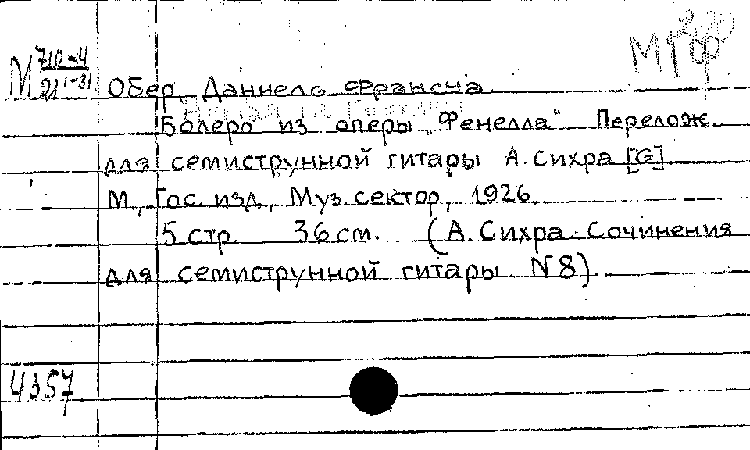 М 710-4
21 1-31
Обер, Даниель Франсуа
Болеро из оперы „Фенелла" Перелож.
для семиструнной гитары А. Сихра [G]
М., Гос. изд., Муз. сектор, 1926.
5 стр. 36 см. (А. Сихра. Сочинения
для семиструнной гитары N 8).
4357